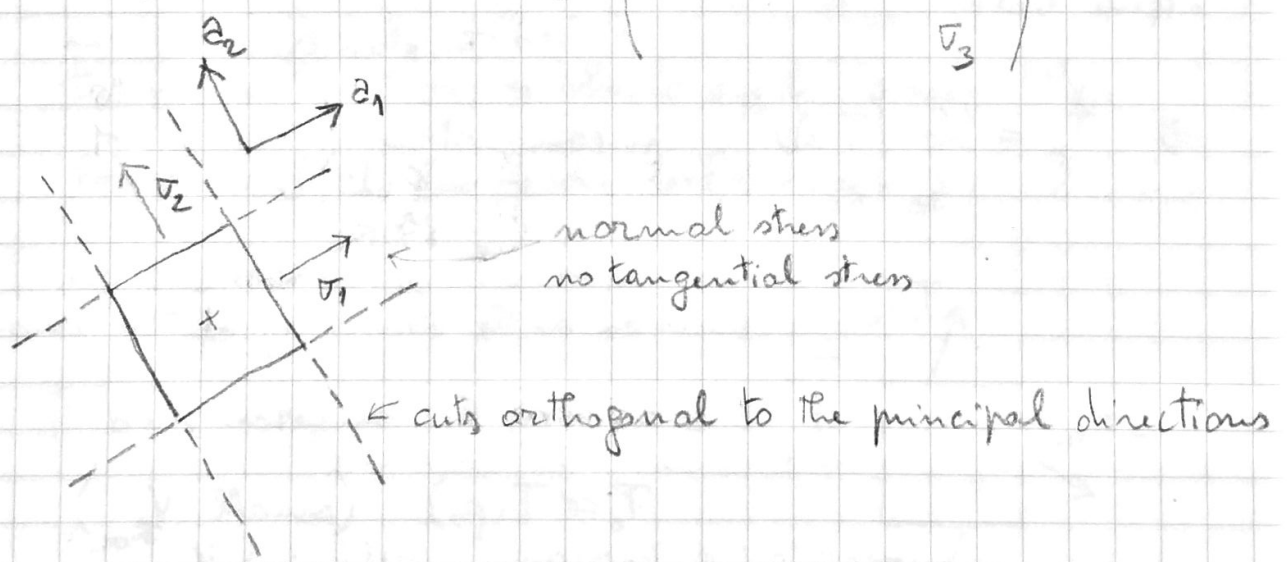 σ₃
a₂
a₁
σ₂
normal stress
σ₁
no tangential stress
x
← cuts orthogonal to the principal directions